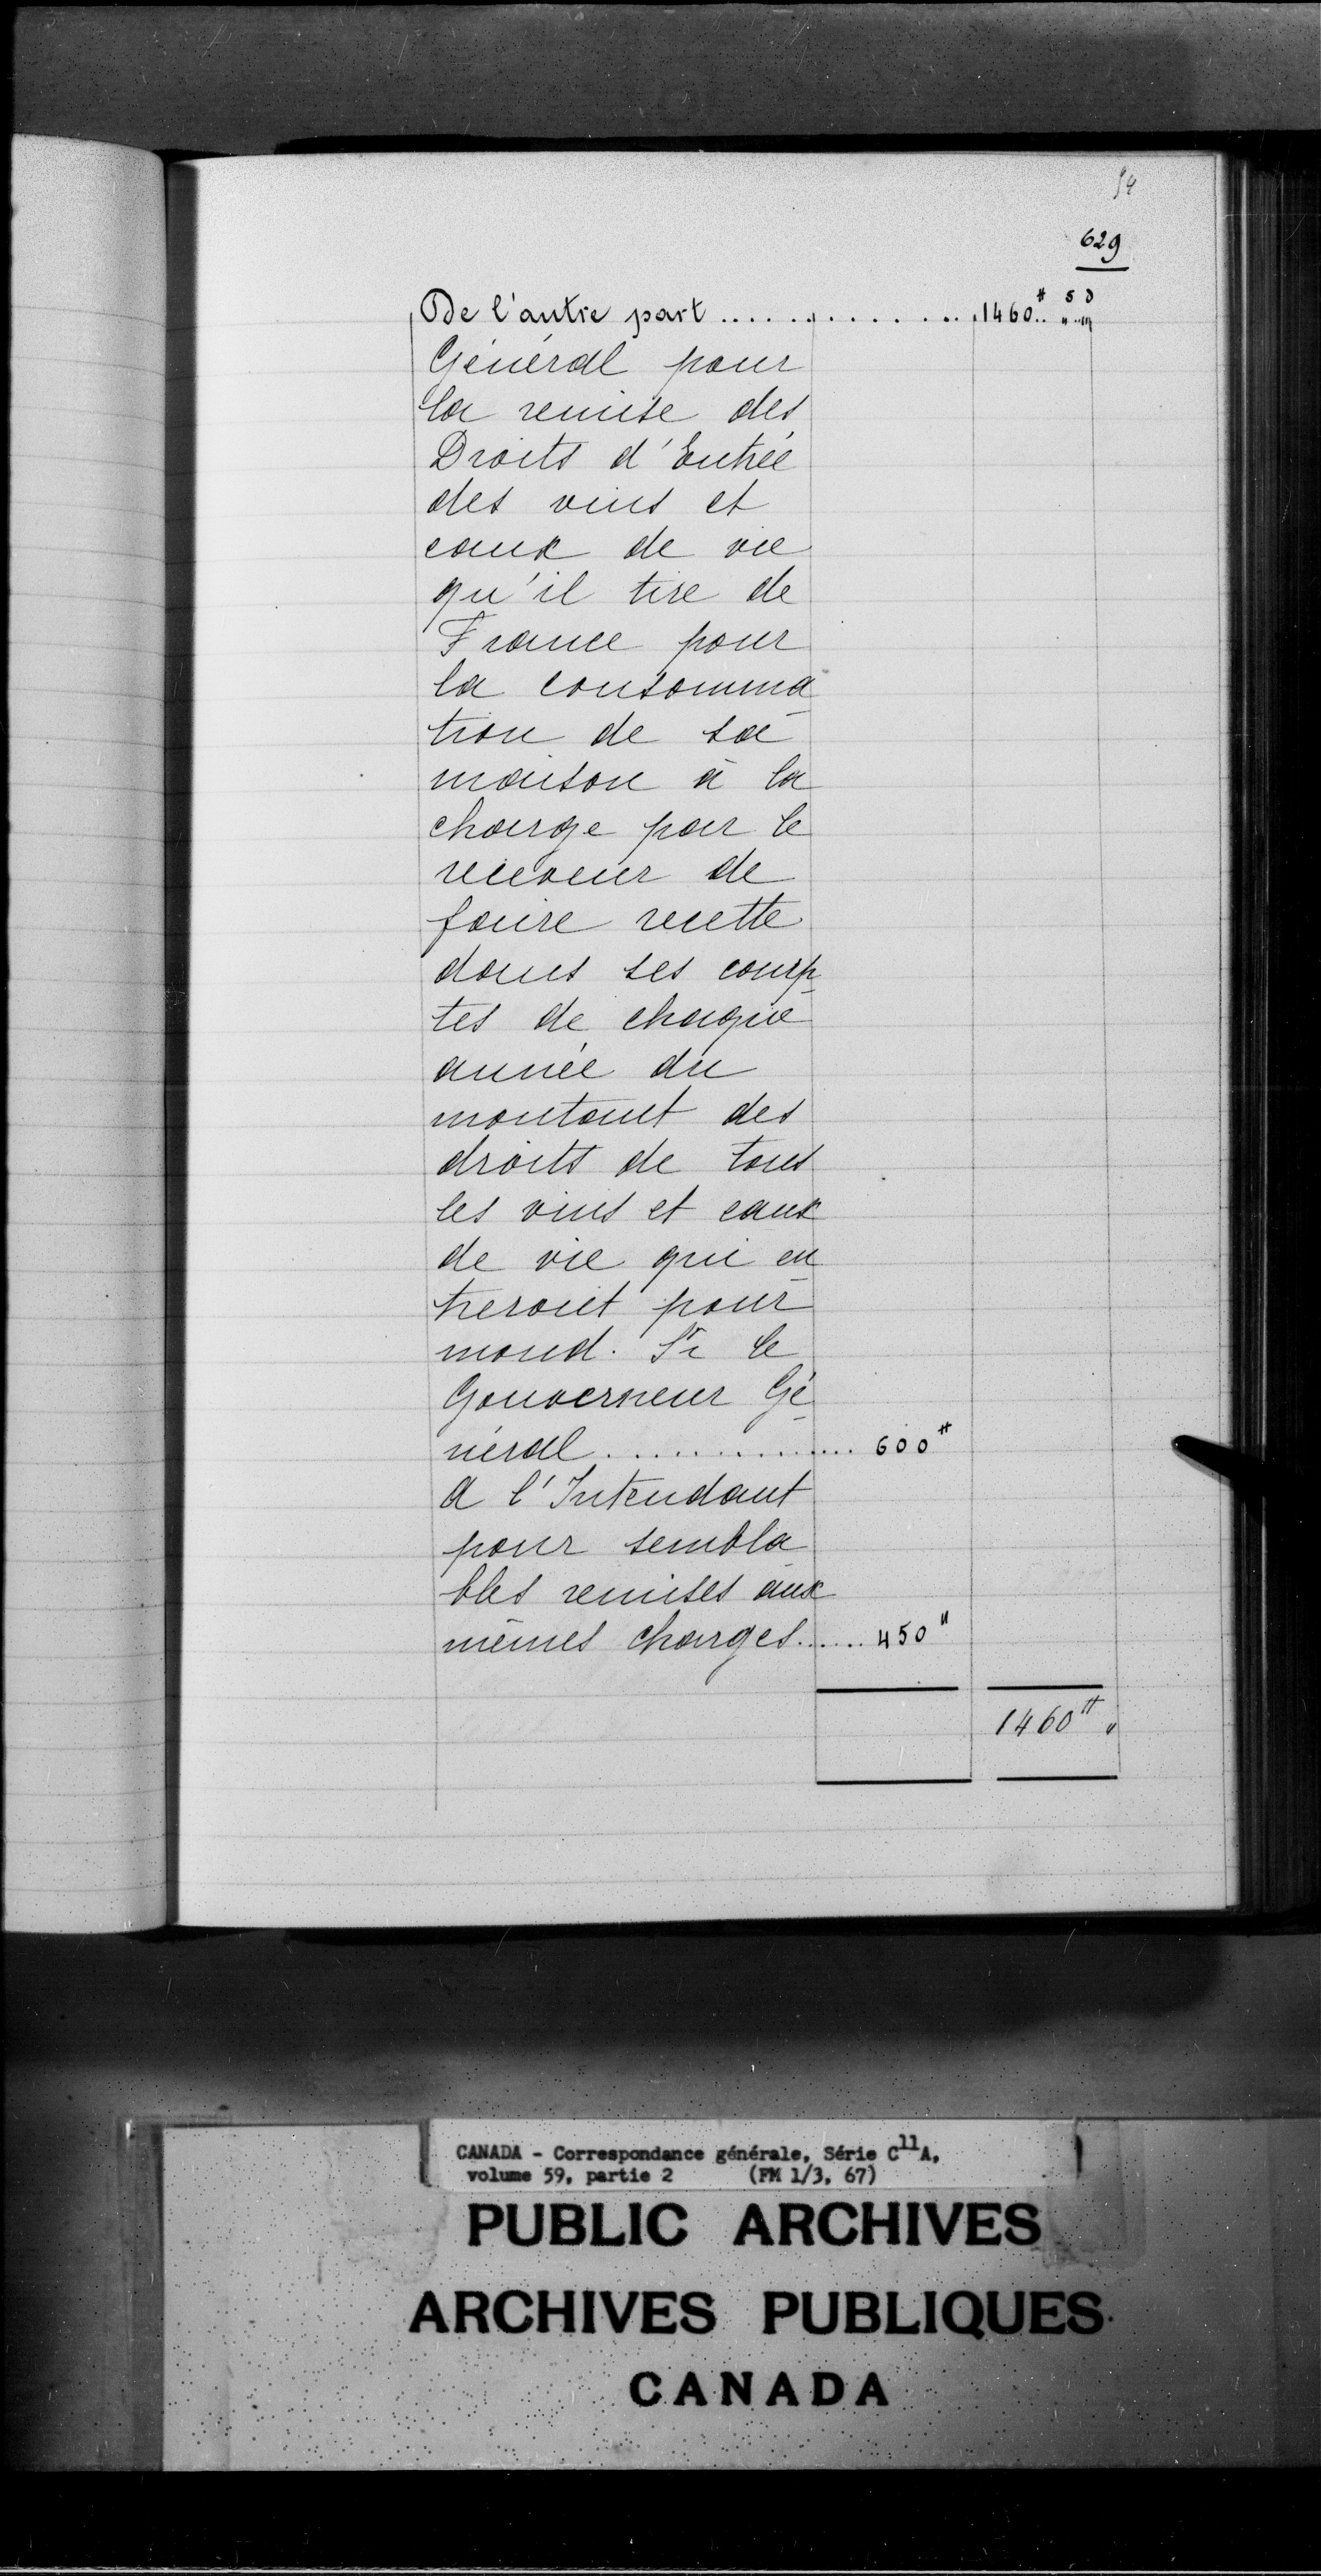 54
629
De l'autre part .................. 1460.. # s D " .. "
Général pour
la remise des
Droits d'Entrée
des vins et
eaux de vie
qu'il tire de
France pour
la consomma
tion de sa
maison à la
charge par le
receveur de
faire recette
dans ses comp
tes de chaque
année du
montant des
droits de tous
les vins et eaux
de vie qui en
treront pour
mond. Sr le
Gouverneur Gé
néral .................. 600 #
A l'Intendant
pour sembla
bles remises aux
mêmes charges ...... 450 "
1460 # "
CANADA - Correspondance générale, Série C11A,
volume 59, partie 2 (FM 1/3, 67)
PUBLIC ARCHIVES
ARCHIVES PUBLIQUES
CANADA